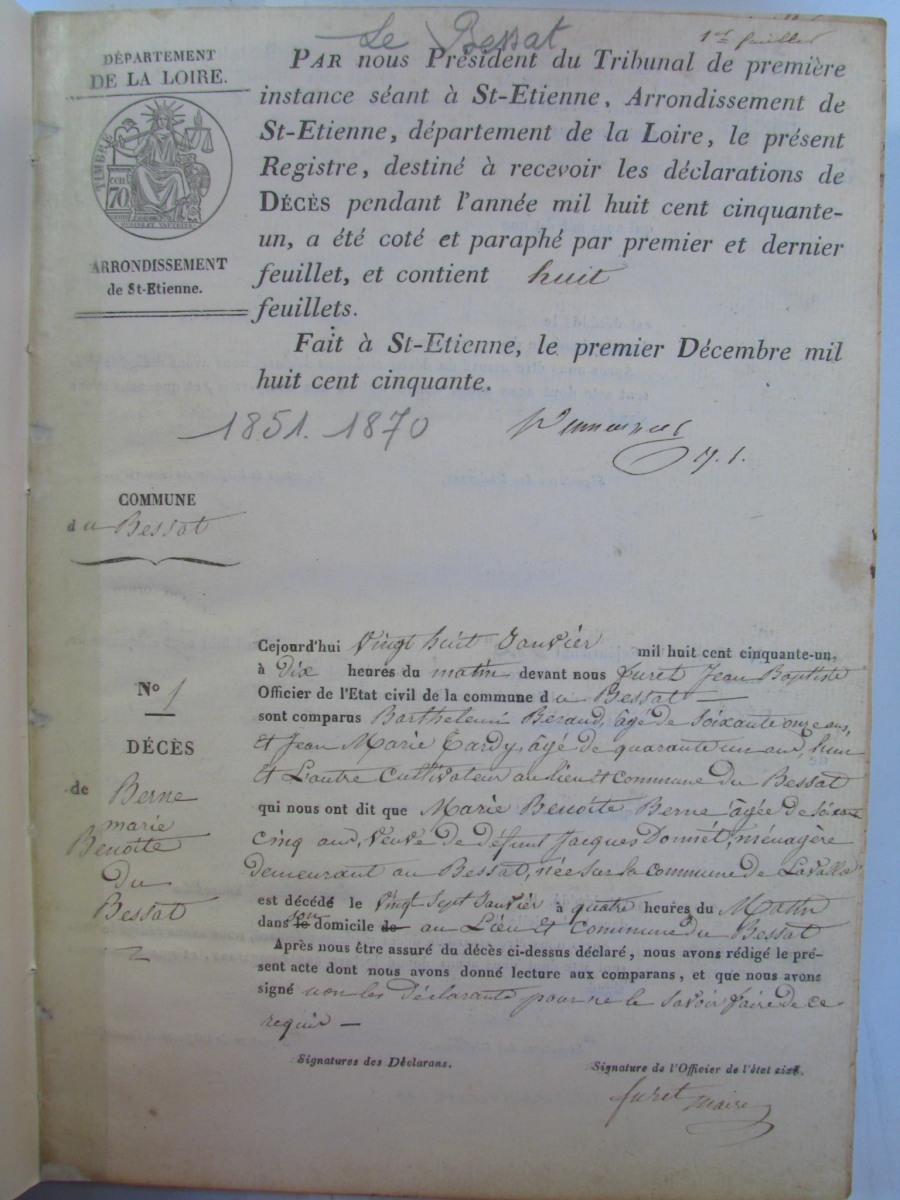 Le Bessat
1er feuillet
DÉPARTEMENT
DE LA LOIRE.
TIMBRE
70
ARRONDISSEMENT
de St-Etienne.
PAR nous Président du Tribunal de première
instance séant à St-Etienne, Arrondissement de
St-Etienne, département de la Loire, le présent
Registre, destiné à recevoir les déclarations de
DÉCÈS pendant l'année mil huit cent cinquante-
un, a été coté et paraphé par premier et dernier
feuillet, et contient huit
feuillets.
Fait à St-Etienne, le premier Décembre mil
huit cent cinquante.
1851. 1870
COMMUNE
du Bessat
No 1
DÉCÈS
de Berne
marie
Benoite
du
Bessat
Cejourd'hui Vingt huit Janvier mil huit cent cinquante-un,
à Dix heures du matin devant nous furet Jean Baptiste
Officier de l'Etat civil de la commune du Bessat
sont comparus Barthelemi Béraud, âgé de soixante onze ans,
et Jean Marie Tardy, âgé de quarante un ans, l'un
et L'autre Cultivateur au lieu et commune du Bessat
qui nous ont dit que Marie Benoite Berne âgée de soixante
cinq ans, Veuve de défunt Jacques Donnet, ménagère
demeurant au Bessat, née sur la commune de Lavalla
est décédé le Vingt Sept Janvier à quatre heures du Matin
dans le son domicile de au Lieu et Commune du Bessat
Après nous être assuré du décès ci-dessus déclaré, nous avons rédigé le pré-
sent acte dont nous avons donné lecture aux comparans, et que nous avons
signé non les Déclarants pour ne le savoir faire de ce
requis
Signatures des Déclarans.
Signature de l'Officier de l'état civil.
furet maire